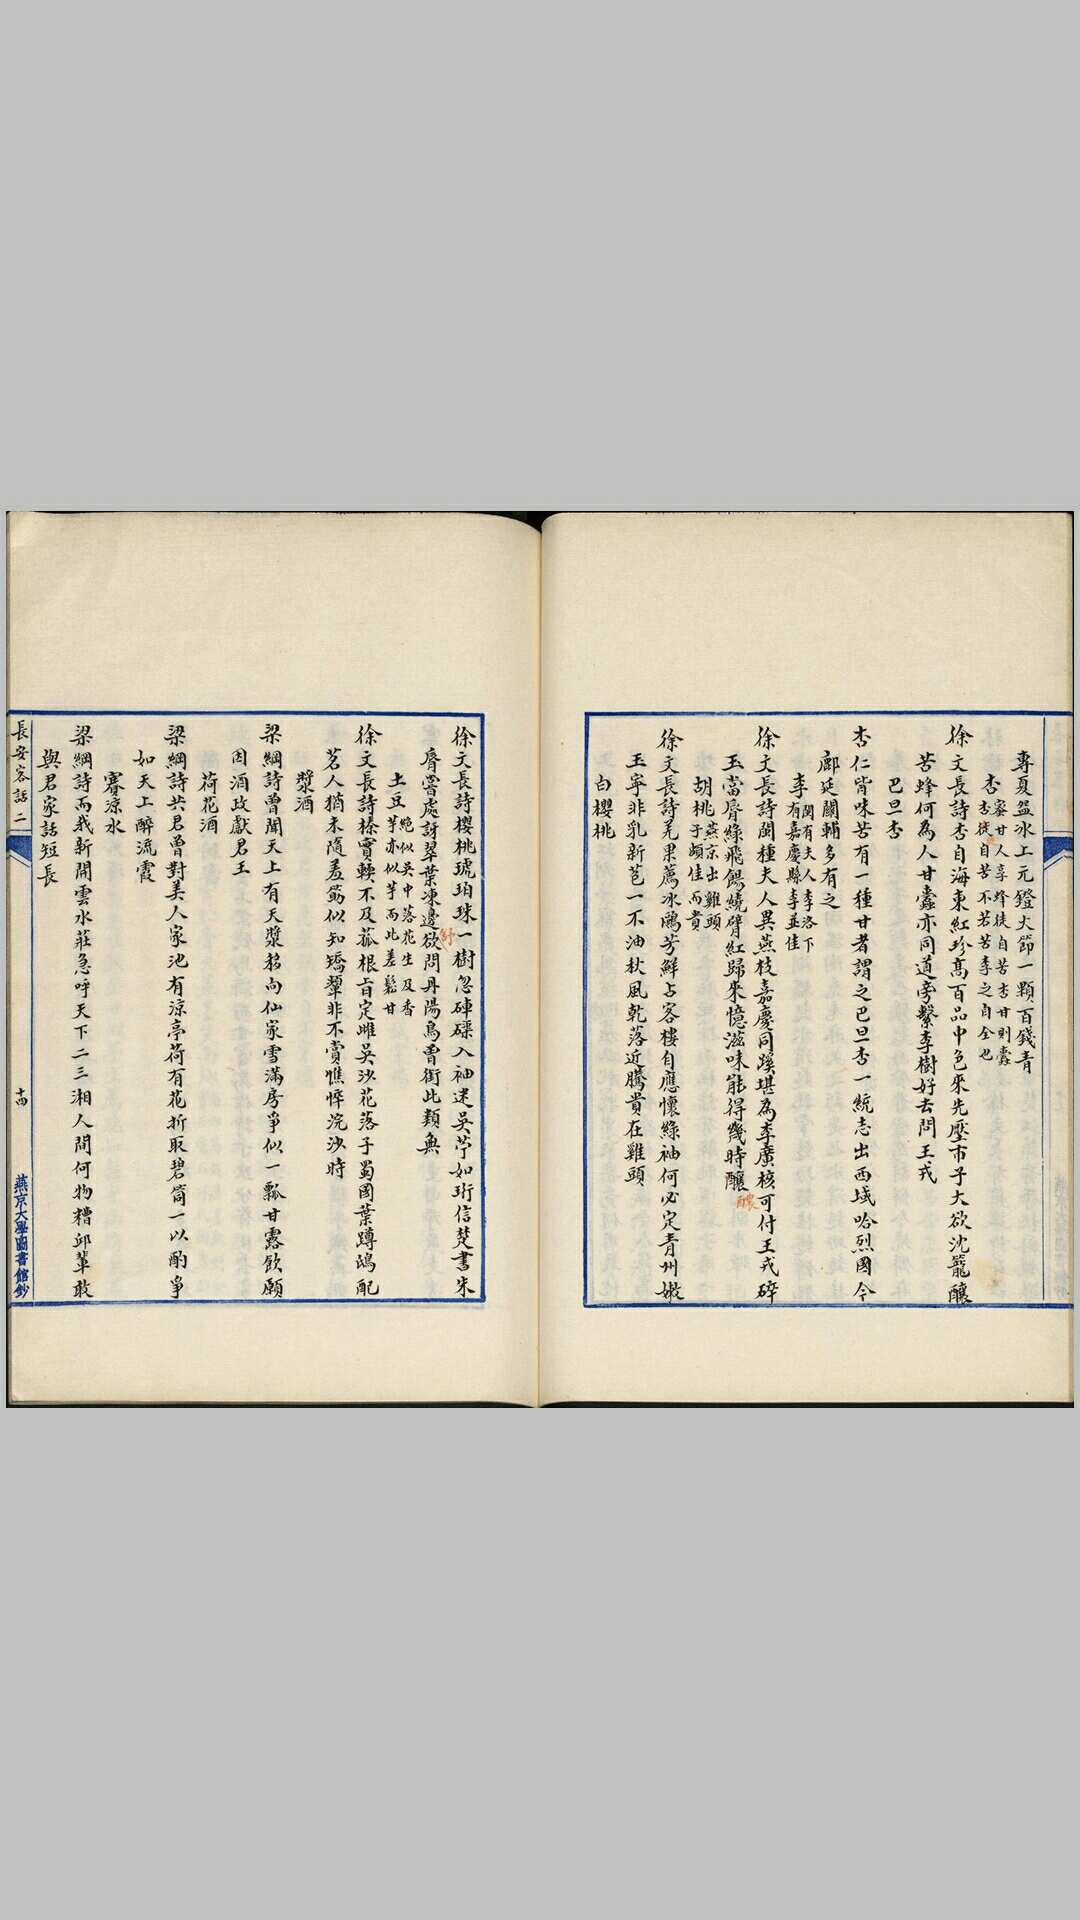 專夏盆冰上元鐙火節一顆百錢青
杏蜜甘人享蜂徒自苦杏甘則蠹
杏徒自苦不若苦李之自全也
徐文長詩杏自海東紅珍髙百品中色來先壓市子大欲沈籠釀
苦蜂何為人甘蠹亦同道旁繫李樹好去問王戎
巴旦杏
杏仁皆味苦有一種甘者謂之巴旦杏一統志出西域哈烈國今
鄜延關輔多有之
李閩有夫人李洛下
有嘉慶縣李並佳
徐文長詩閩種夫人異燕枝嘉慶同蹊堪為李廣核可付王戎碎
玉當脣綠飛觴繞臂紅歸來憶滋味能得幾時釀
醲
胡桃燕京出雞頭
于頗佳而貴
徐文長詩羌果薦冰鷗芳鮮占客樓自應懷綠袖何必定青州嫩
玉寧非乳新苞一不油秋風乾落近騰貴在雞頭
白櫻桃
徐文長詩櫻桃琥珀珠一樹忽硨磲入袖迷吳苧如珩信楚書朱
脣嘗處訝翠葉凍邊欲問丹陽鳥曾銜此類無
紓
土豆絕似吳中落花生及香
芋亦似芋而此差鬆甘
徐文長詩榛實輭不及菰根旨定雌吳沙花落子蜀國葉蹲鴟配
茗人猶未隨羞箸似知矯颦非不賞憔悴浣沙時
漿酒
梁綱詩曾聞天上有天漿移向仙家雪滿房爭似一瓢甘露飲願
因酒政獻君王
荷花酒
梁綱詩共君曾對美人家池有涼亭荷有花折取碧筒一以酌爭
如天上醉流霞
賽涼水
梁綱詩而我新開雲水莊急呼天下二三湘人間何物糟邱輩敢
與君家話短長
長安客話二
十四
燕京大學圖書館鈔